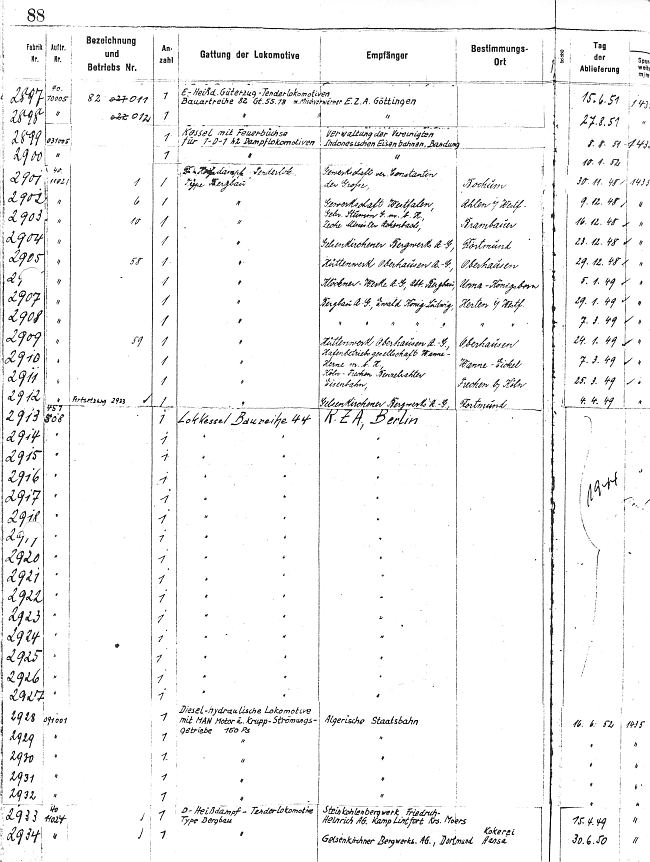 88
Fabrik Nr. Auftr. Nr. Bezeichnung und Betriebs Nr. An- zahl Gattung der Lokomotive Empfänger Bestimmungs- Ort Tag der Ablieferung
2897 70005 82 011 1 E-Heißd. Güterzug-Tenderlokomotiven
Bauartreihe 82 Gt. 55.18 E.Z.A. Göttingen 15.6.51 143
2898 " 012 1 " " 27.8.51 "
2899 031005 1 Kessel mit Feuerbüchse Verwaltung der Vereinigten
für 1-D-1 h2 Dampflokomotiven Indonesischen Eisenbahnen, Bandung 8.8.51 143
2900 " 1 " " 10.1.52
2901 11021 1 1 Tenderlok. Gewerkschaft ver. Constantin
Type Bergbau der Große, Bochum 30.11.48 1435
2902 " 6 1 " Gewerkschaft Westfalen, Ahlen i/Westf. 9.12.48 "
2903 " 10 1 " Gebr. Stumm G.m.b.H,
Zeche Minister Achenbach, Brambauer 16.12.48 "
2904 " 1 " Gelsenkirchener Bergwerk A-G, Dortmund 23.12.48 "
2905 " 58 1 " Hüttenwerk Oberhausen A-G, Oberhausen 29.12.48 "
" 1 " Klöckner-Werke A.G, Abt. Bergbau, Unna-Königsborn 5.1.49 "
2907 " 1 " Bergbau A-G, Ewald König Ludwig, Herten i/Westf. 29.1.49 "
2908 " 1 " " " " " " " 7.3.49 "
2909 " 59 1 " Hüttenwerk Oberhausen A-G, Oberhausen 24.1.49 "
2910 " 1 " Hafenbetriebsgesellschaft Wanne-
Herne m.b.H, Wanne-Eickel 7.3.49 "
2911 " 1 " Köln-Frechen-Benzelrather
Eisenbahn, Frechen b/Köln 25.3.49 "
2912 " Fortsetzug 2933 1 " Gelsenkirchener Bergwerks A-G, Dortmund 4.4.49 "
2913 457 808 1 Lokkessel Baureihe 44 R.Z.A, Berlin
2914 " 1 " " "
2915 " 1 " " "
2916 " 1 " " " "
2917 " 1 " " " 1944
2918 " 1 " " "
" 1 " " "
2920 " 1 " " "
2921 " 1 " " "
2922 " 1 " " "
2923 " 1 " " "
2924 " 1 " " "
2925 " 1 " " "
2926 " 1 " " "
2927 " 1 " " "
2928 091001 1 Diesel-hydraulische Lokomotive
mit MAN Motor u. Krupp-Strömungs- Algerische Staatsbahn 16.6.52 1435
getriebe 160 Ps
2929 " 1 " " " "
2930 " 1 " " " "
2931 " 1 " " " "
2932 " 1 " " " "
2933 11024 1 D-Heißdampf-Tenderlokomotive Steinkohlenbergwerk Friedrich-
Type Bergbau Heinrich AG. Kamp Lintfort Krs. Moers 15.4.49 "
2934 " 1 " Gelsenkirchner Bergwerks. AG., Dortmund Kokerei Hansa 30.6.50 "